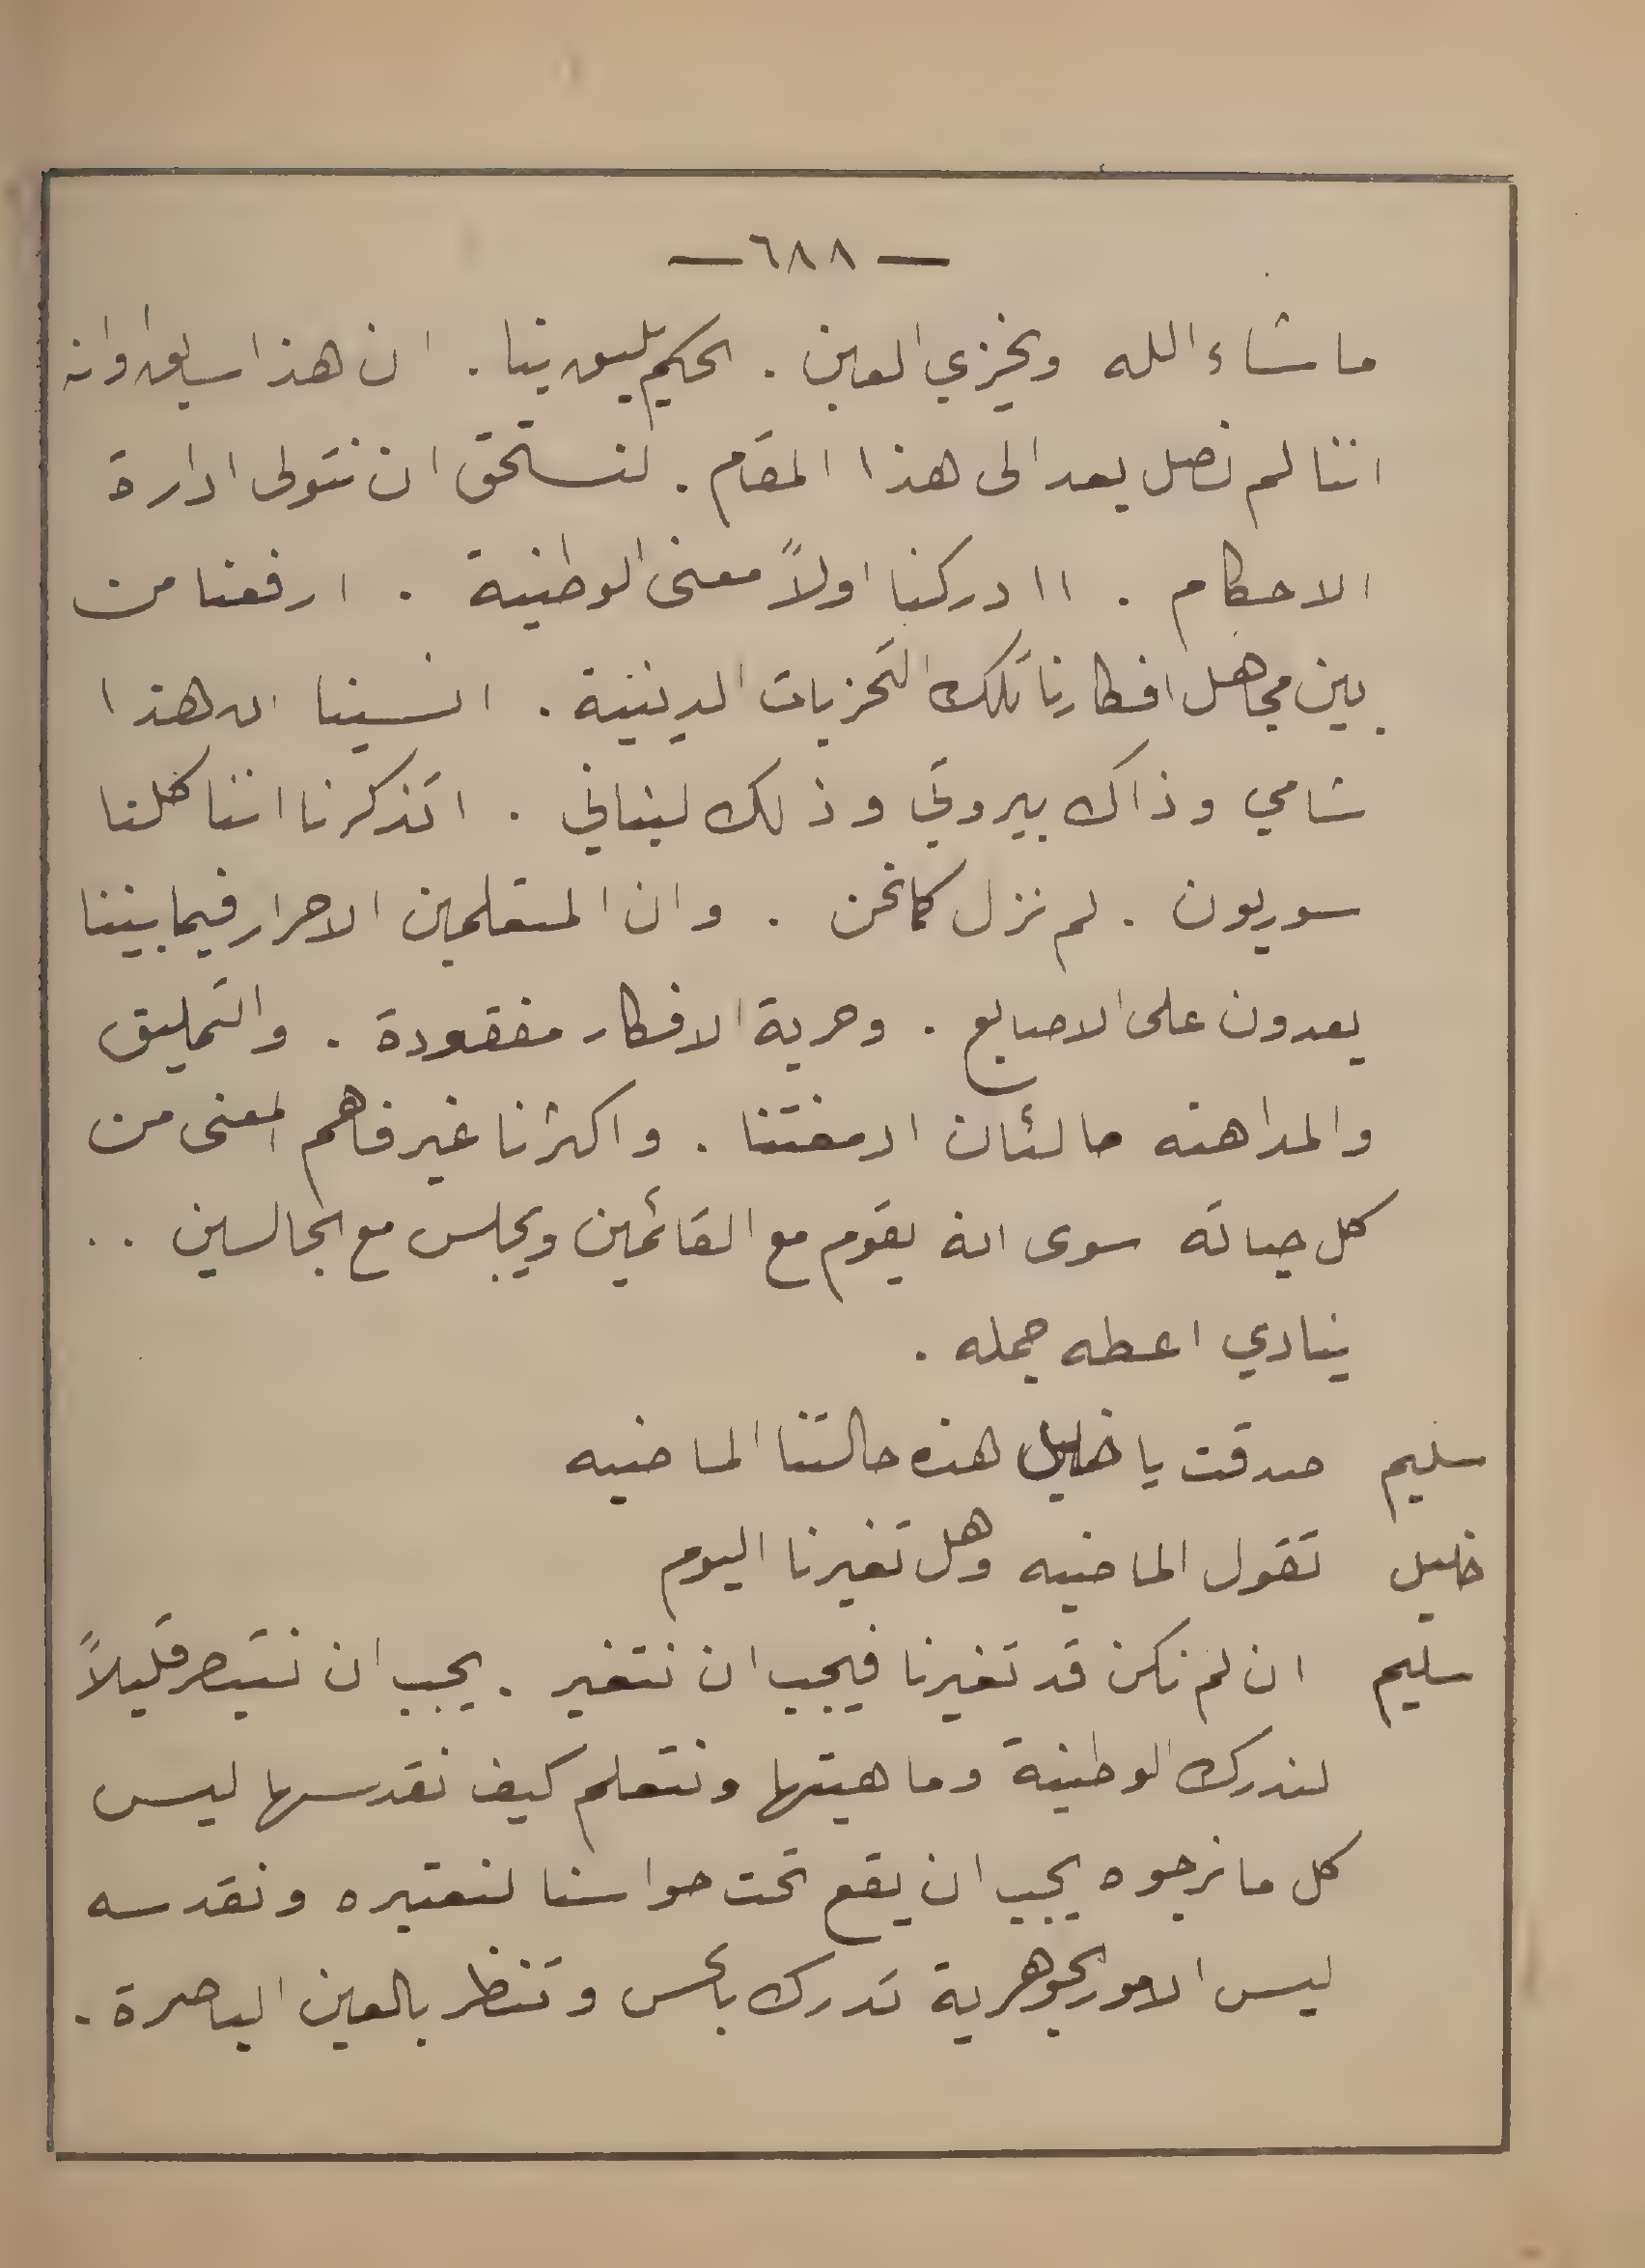 — ٦٨٨ —
ما شاء الله ويخزي العين . الحكم يليق بنا . ان هذا سابق اوانه
اننا لم نصل بعد الى هذا المقام . لنستحق ان نتولى ادارة
الاحكام . اادركنا اولاً معنى الوطنية . ارفعنا من
بين مجاهل افكارنا تلك التحزبات الدينية . انسينا ان هذا
شامي وذاك بيروتي وذلك لبناني . اتذكرنا اننا كلنا
سوريون . لم نزل كما نحن . وان المتعلمين الاحرار فيما بيننا
يعدون على الاصابع . وحرية الافكار مفقودة . والتمليق
والمداهنه مالئان ادمغتنا . واكثرنا غير فاهم المعنى من
كل حياته سوى انه يقوم مع القائمين ويجلس مع الجالسين ..
ينادي اعطه جمله .
سليم صدقت يا خليل هذه حالتنا الماضيه
خليل تقول الماضيه وهل تغيرنا اليوم
سليم ان لم نكن قد تغيرنا فيجب ان نتغير . يجب ان نتبصر قليلاً
لندرك الوطنية وماهيتها ونتعلم كيف نقدسها ليس
كل ما نرجوه يجب ان يقع تحت حواسنا لنعتبره ونقدسه
ليس الامور الجوهرية تدرك بالحس وتنظر بالعين الباصرة .